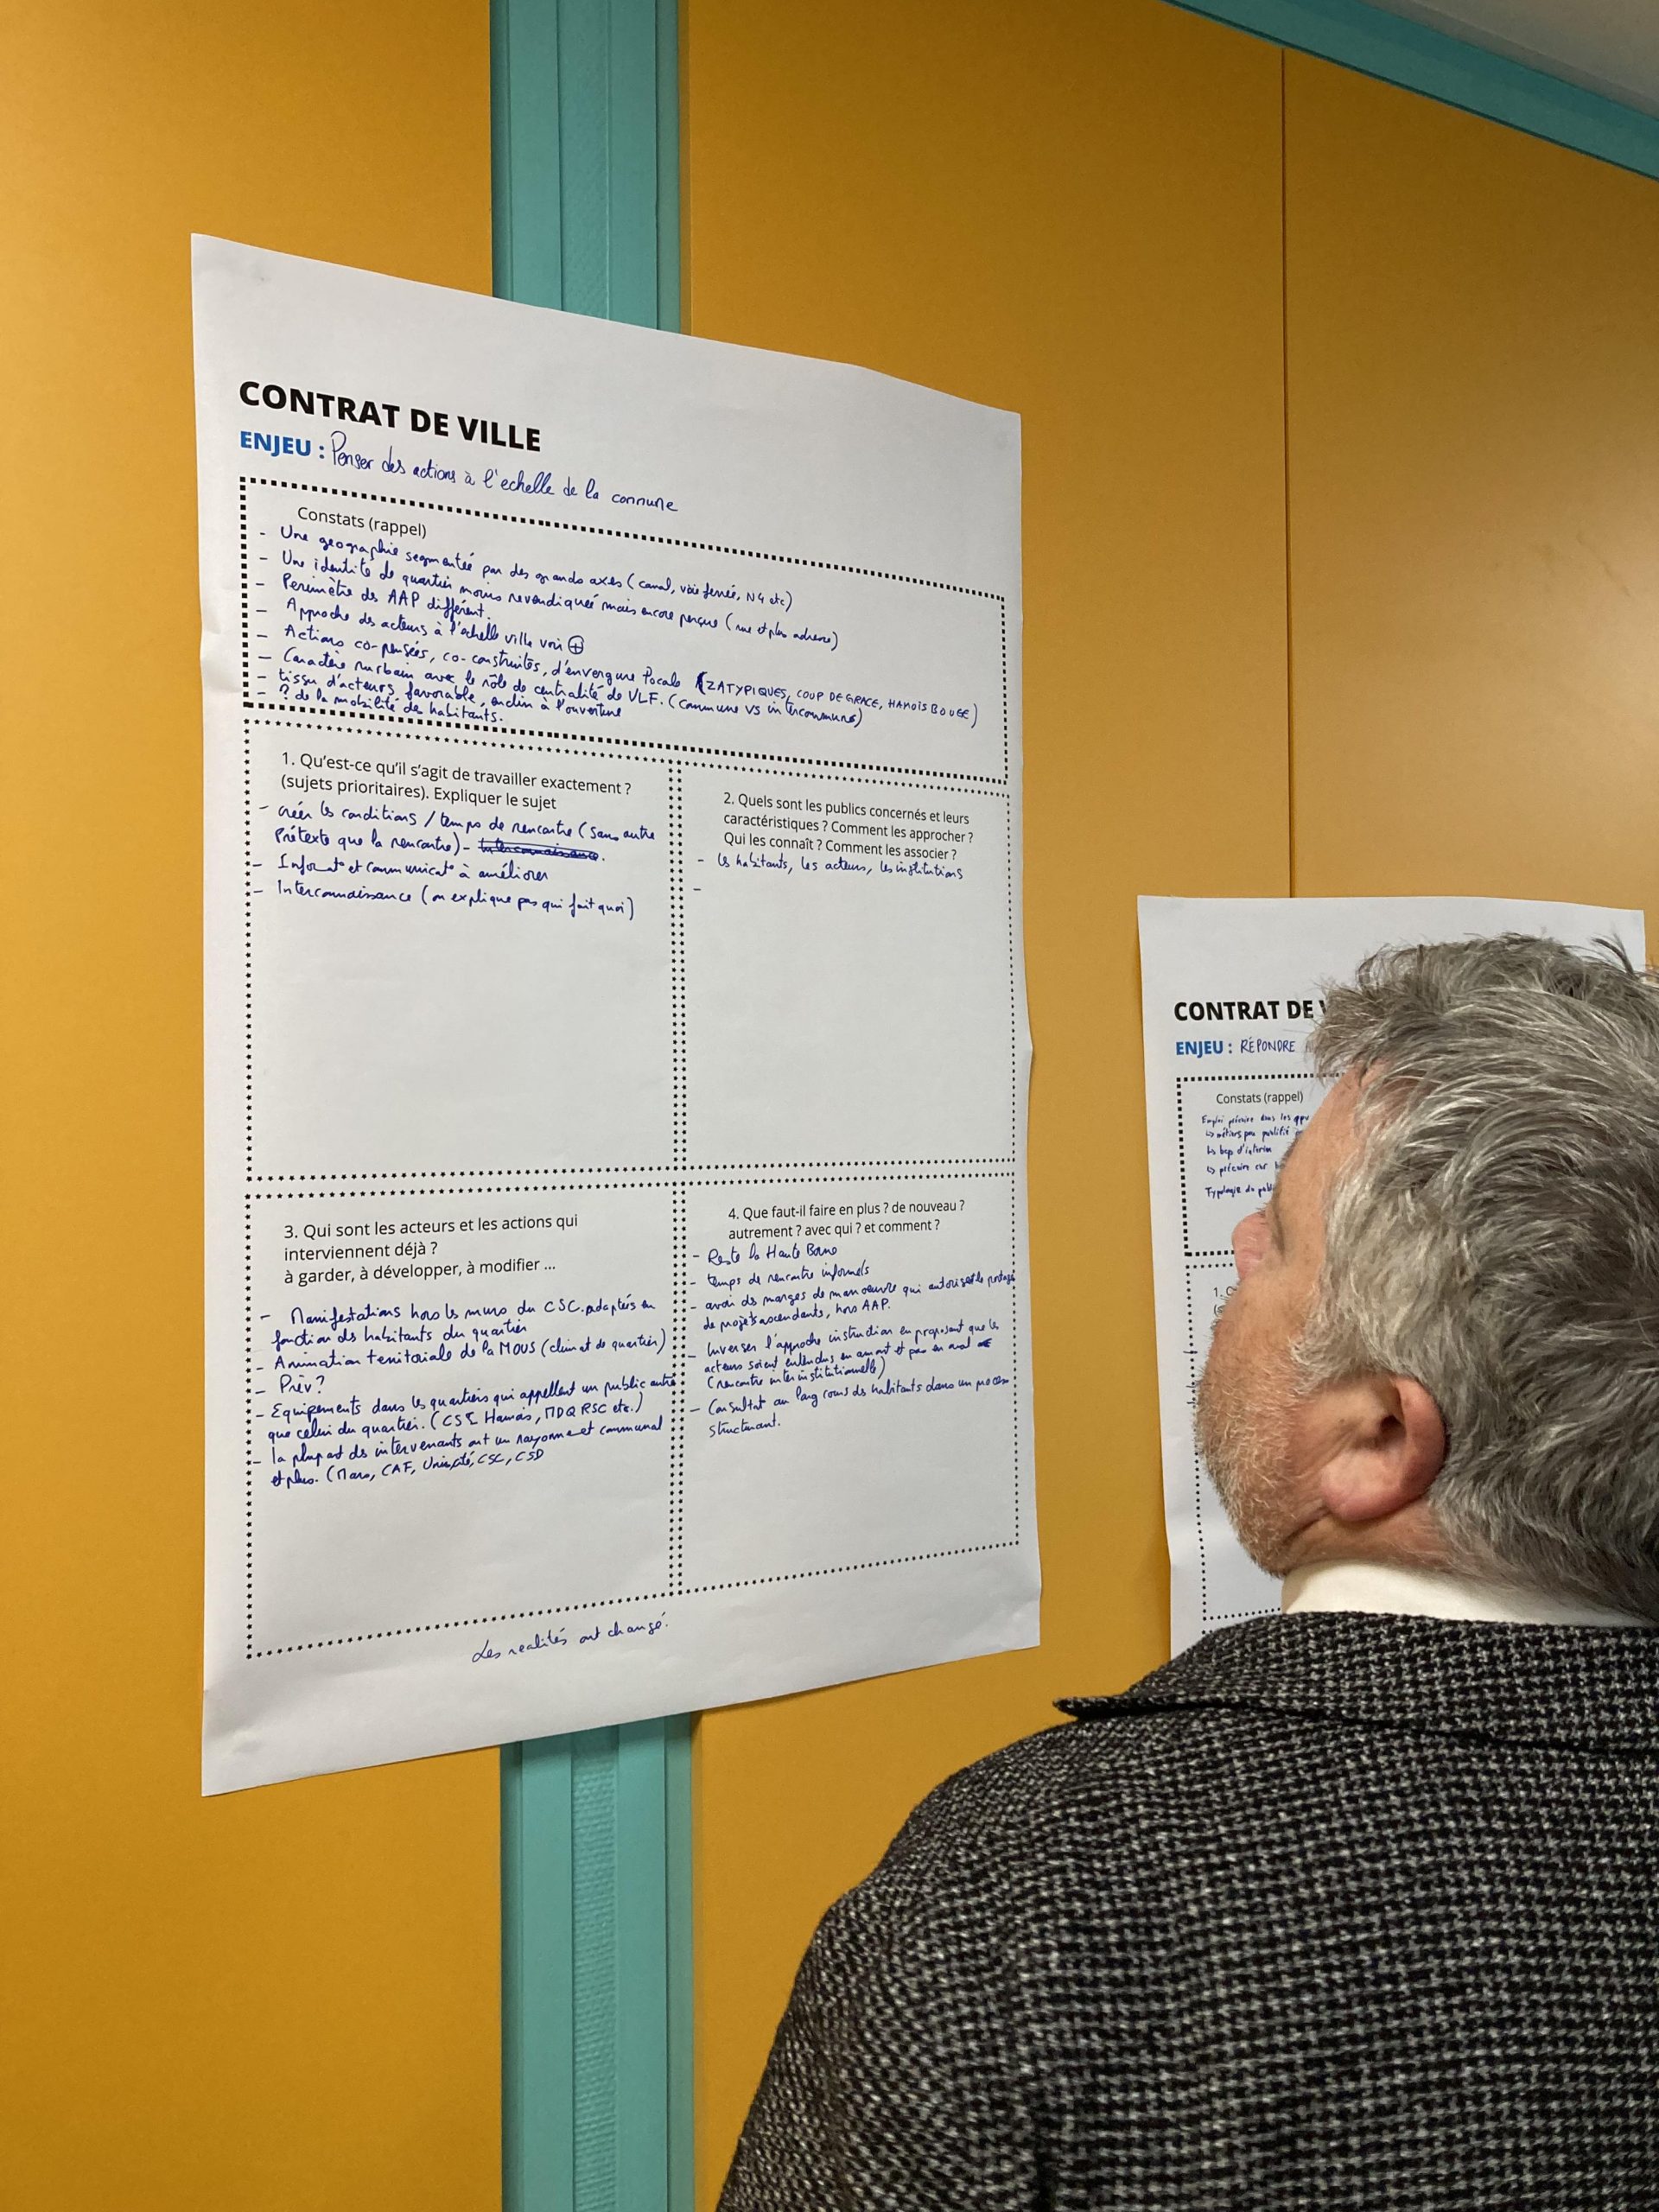 CONTRAT DE VILLE
ENJEU : Penser des actions à l'echelle de la commune
Constats (rappel)
- Une geographie segmentée par des grands axes (canal, voie ferrée, N4 etc)
- Une identité de quartier moins revendiquée mais encore perçue (rue et plus adresse)
- Perimètre des AAP différent.
- Approche des acteurs à l'echelle ville voir +
- Actions co-pensées, co-construites, d'envergure locale (ZATYPIQUES, COUP DE GRACE, HAMOIS BOUGE)
- Caractère rurbain avec le rôle de centralité de VLF. (commune VS intercommune)
- tissu d'acteurs favorable, enclin à l'ouverture
- ? de la mobilité des habitants.
1. Qu'est-ce qu'il s'agit de travailler exactement ?
(sujets prioritaires). Expliquer le sujet
- créer les conditions / temps de rencontre (sans autre
prétexte que la rencontre) - Interconnaissance.
- Informat° et communicat° à améliorer
- Interconnaissance (on explique pas qui fait quoi)
2. Quels sont les publics concernés et leurs
caractéristiques ? Comment les approcher ?
Qui les connaît ? Comment les associer ?
- les habitants, les acteurs, les institutions
-
3. Qui sont les acteurs et les actions qui
interviennent déjà ?
à garder, à développer, à modifier ...
- Manifestations hors les murs du CSC. adaptés en
fonction des habitants du quartier
- Animation territoriale de la MOUS (climat de quartier)
- Prév?
- Equipements dans les quartiers qui appellent un public autre
que celui du quartier. (CSC Hamois, MDQ RSC etc.)
- la plupart des intervenants ont un rayonnement communal
et plus. (Mars, CAF, Unis-cité, CSC, CSD
4. Que faut-il faire en plus ? de nouveau ?
autrement ? avec qui ? et comment ?
- Reste la Haute Borne
- temps de rencontre informels
- avoir des marges de manoeuvre qui autorisent le portage
de projets ascendants, hors AAP.
- Inverser l'approche instruction en proposant que les
acteurs soient entendus en amont et pas en aval
(rencontre interinstitutionnelle)
- Consultat° au long cours des habitants dans un process
structurant.
Les realités ont changé.
CONTRAT DE V
ENJEU : RÉPONDRE
Constats (rappel)
Emploi précaire dans les qpv
↳ métiers peu qualifié
↳ bcp d'interim
↳ précaire car
Typologie du publi
1. C